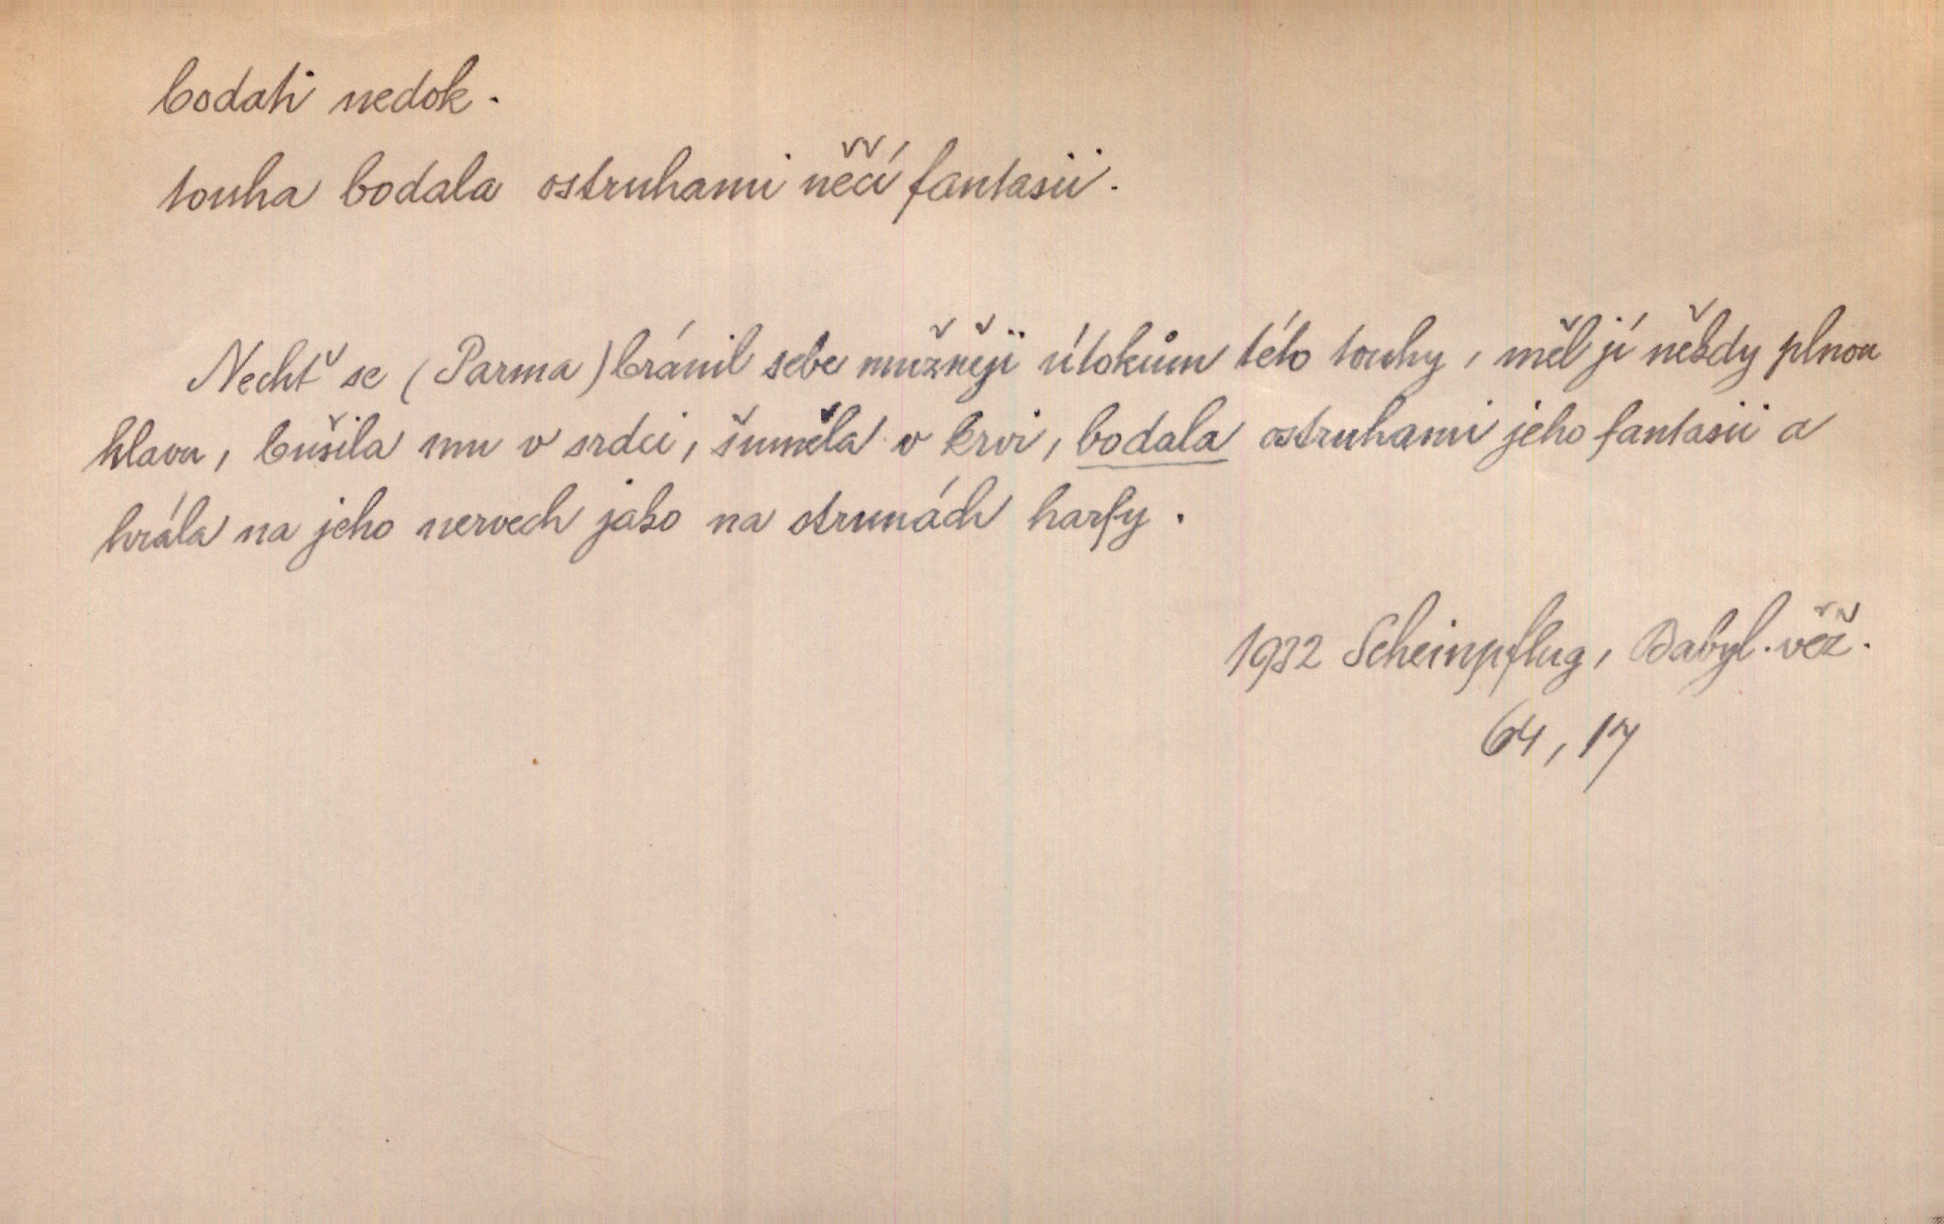 bodati nedok.
touha bodala ostruhami něčí fantasii.
Nechť se (Parma) bránil sebe mužněji útokům této touhy, měl jí někdy plnou
hlavu, bušila mu v srdci, šuměla v krvi, bodala ostruhami jeho fantasii a
hrála na jeho nervech jako na strunách harfy.
1932 Scheinpflug, Babyl. věž.
64, 17